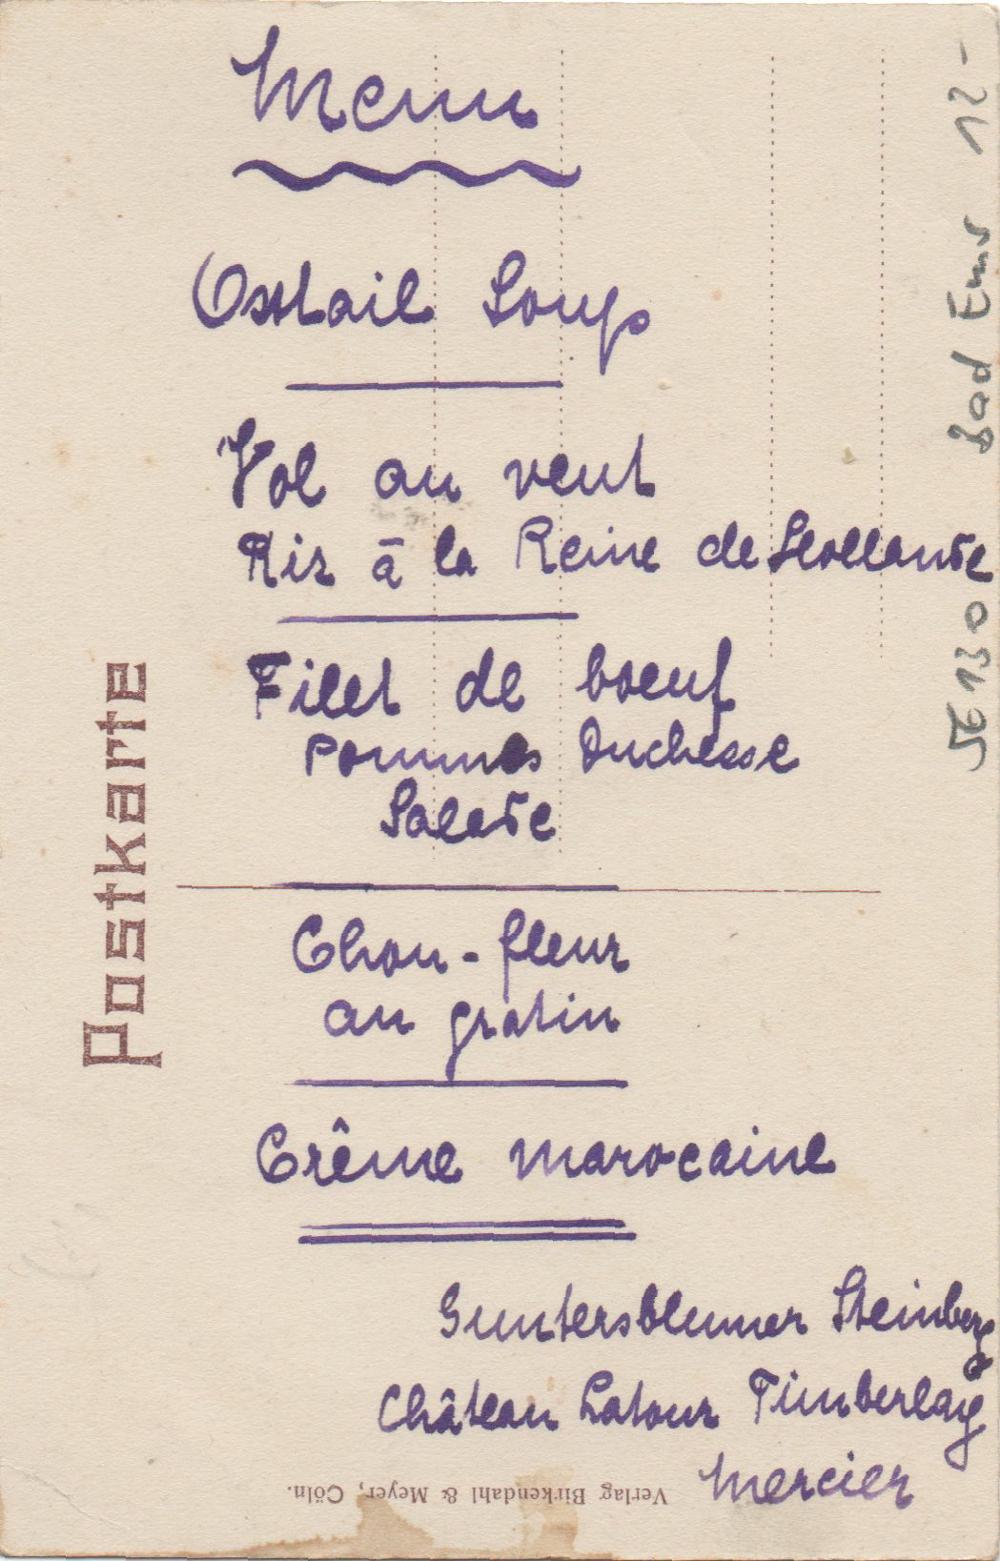 Menu
Oxtail Soup
Vol au vent
Ris à la Reine de Hollande
Filet de boeuf
Pommes Duchesse
Salade
Chou-fleur
au gratin
Crême marocaine
Guntersblumer Steinberg
Château Latour Timberlay
Mercier
Postkarte
Verlag Birkendahl & Meyer, Cöln.
Bad Ems 12-